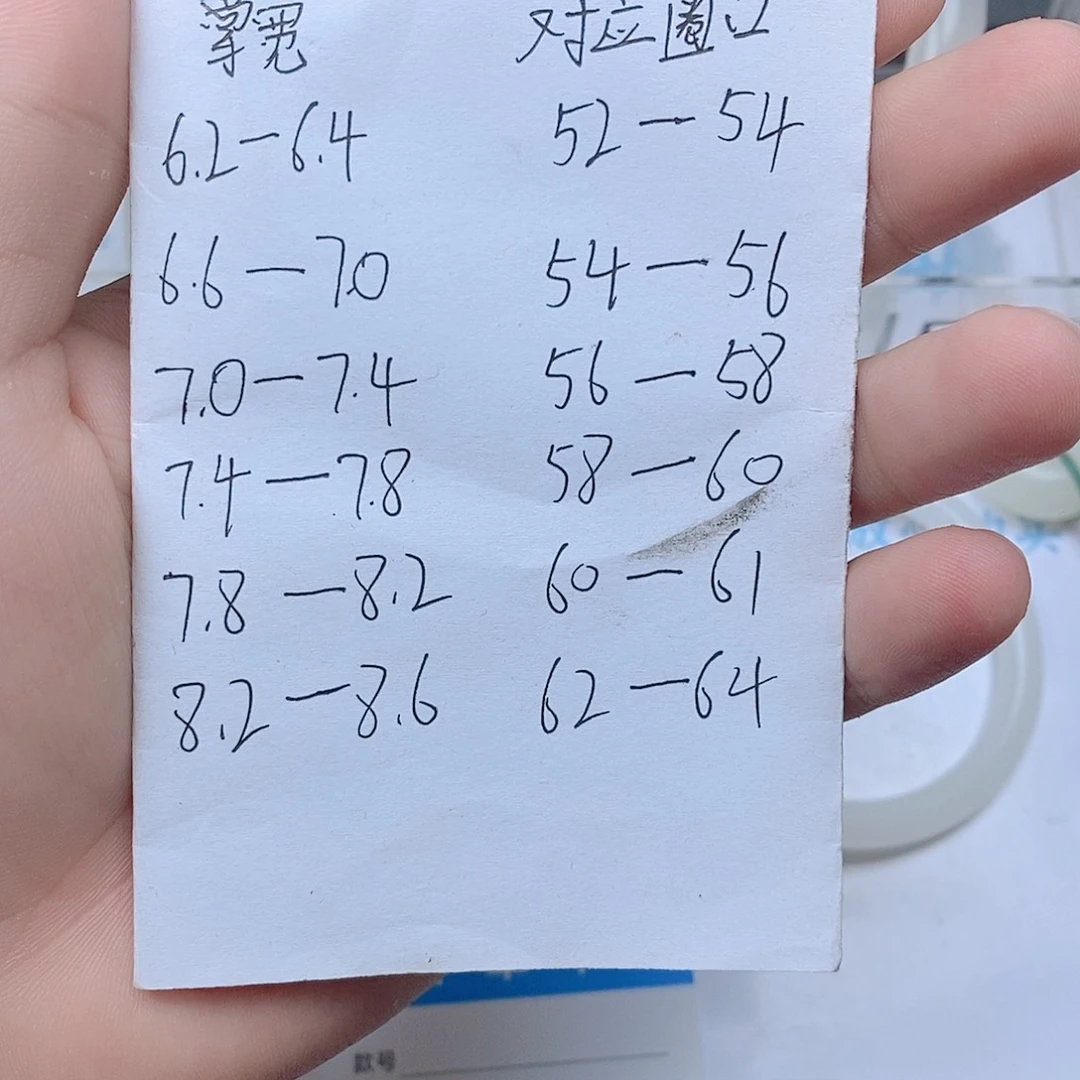 掌宽 对应圈口
6.2—6.4 52—54
6.6—7.0 54—56
7.0—7.4 56—58
7.4—7.8 58—60
7.8—8.2 60—61
8.2—8.6 62—64
款号